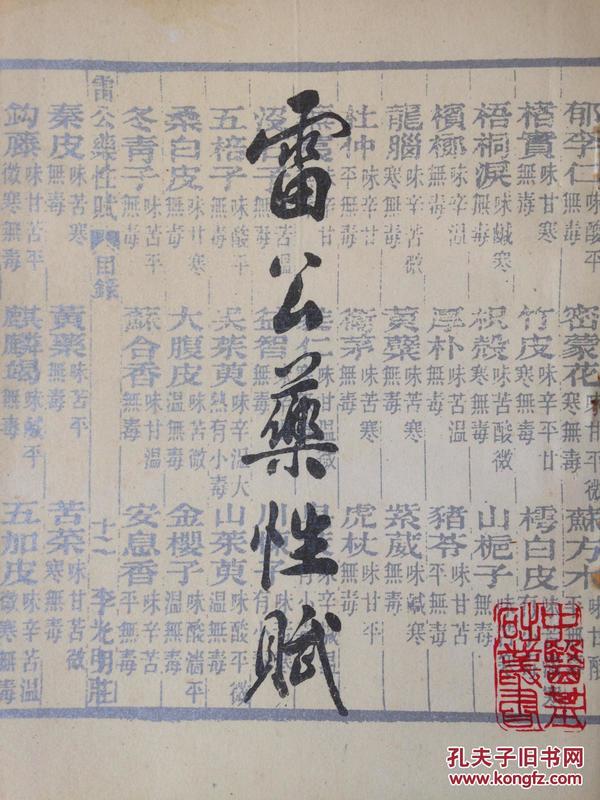 雷公藥性賦
郁李仁 味酸平無毒
密蒙花 味甘平微寒無毒
蘇方木
楮實 味甘寒無毒
竹皮
樗白皮
梧桐淚 味鹹寒無毒
枳殼 味苦酸微寒無毒
山梔子
檳榔 味辛溫無毒
厚朴 味苦溫無毒
豬苓 味甘平無毒
龍腦 味辛苦微寒無毒
黃蘗 味苦寒無毒
紫葳 味鹹寒無毒
杜仲
衛茅 味苦寒無毒
虎杖 味甘平無毒
沒
益智
川
五棓子 味酸平無毒
吳茱萸 味辛溫大熱有小毒
山茱萸 味酸平微溫無毒
桑白皮 味甘寒無毒
大腹皮 味苦微溫無毒
金櫻子 味酸濇平溫無毒
冬青子 味苦平無毒
蘇合香 味甘溫無毒
安息香 味辛苦平無毒
雷公藥性賦 目錄 十二 李光明莊
秦皮 味苦寒無毒
黃藥 味苦平無毒
苦茶 味甘苦微寒無毒
鈎藤 味甘苦平微寒無毒
麒麟竭 味鹹平無毒
五加皮 味辛苦溫微寒無毒
中醫基
础叢書
孔夫子旧书网
www.kongfz.com